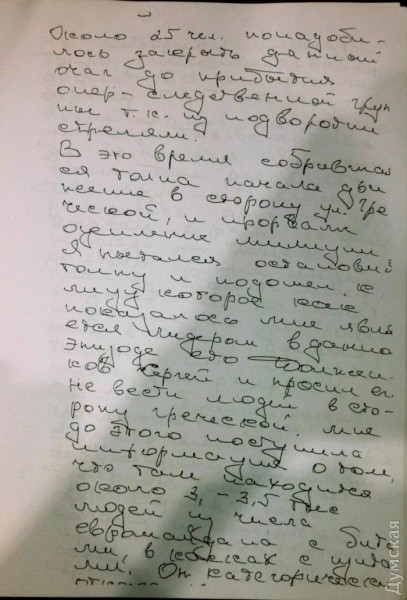 Около 25 чел. понадоби-
лось закрыть данный
очаг до прибытия
опер-следственной груп
пы т.к. из подворотни
стреляли.
В это время собравшая
ся толпа начала дви
жение в сторону ул. Гре
ческой, и прорвали
оцепление милиции
Я пытался остановить
толпу и подошел к
лицу которое как
показалось мне явля
ется лидером в данно
эпизоде это
ков Сергей и просил его
не вести людей в сто-
рону греческой. мне
до этого поступила
информация о том,
что там находится
около 3,-3,5 тыс
людей из числа
евромайдана с бита
ми, в касках с щита
ми. Он категорически
Думская